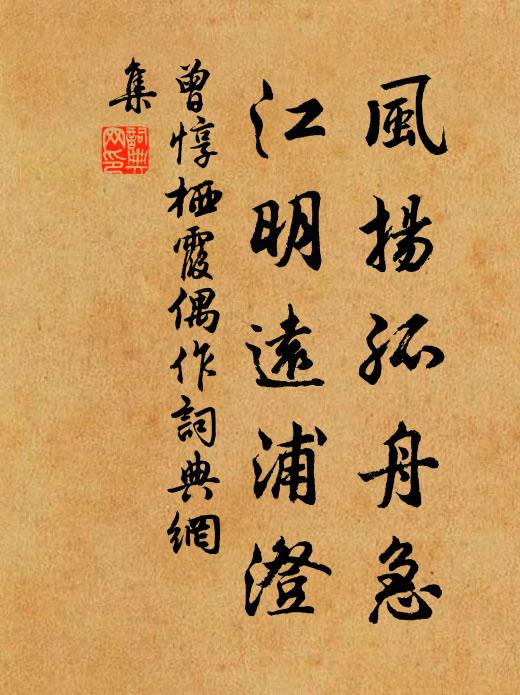 風揚孤舟急
江明遠浦澄
曾惇栖霞偶作詞典網
集
詞典網印